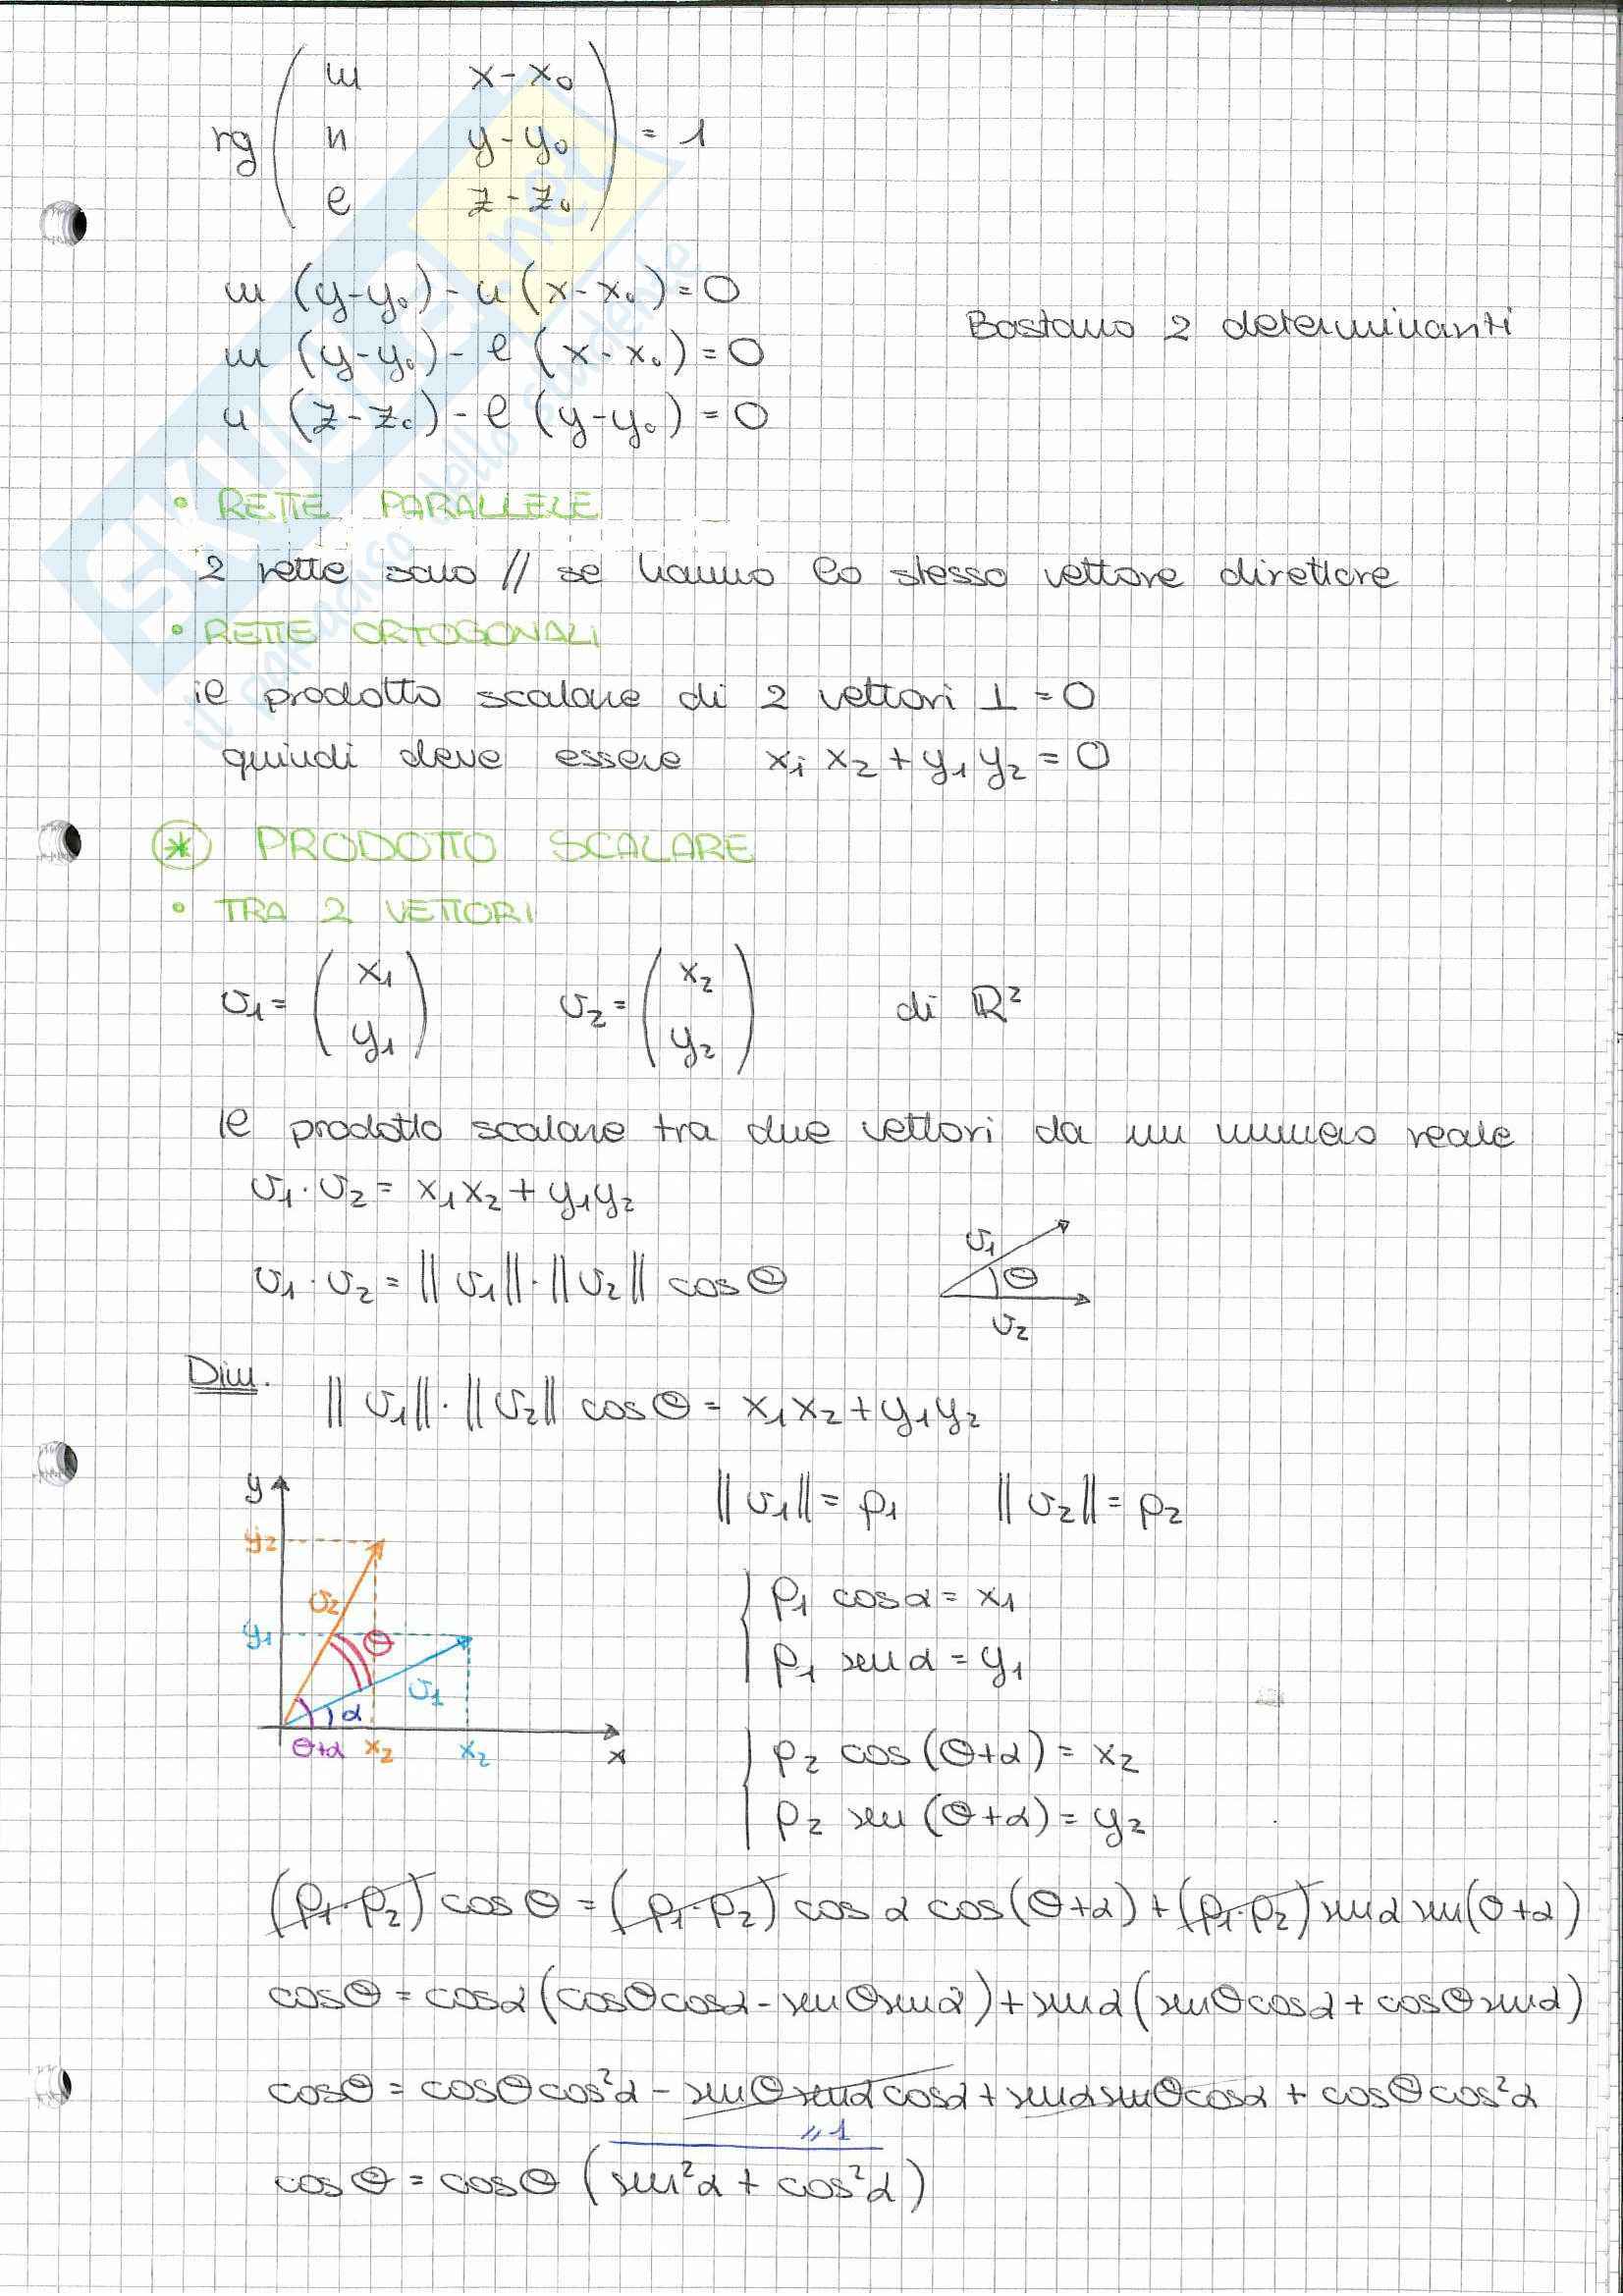 rg ( m x-x₀
n y-y₀ = 1
l z-z₀ )
m (y-y₀) - n (x-x₀) = 0
m (y-y₀) - l (x-x₀) = 0
Bastano 2 determinanti
n (z-z₀) - l (y-y₀) = 0
• RETTE PARALLELE
2 rette sono // se hanno lo stesso vettore direttore
• RETTE ORTOGONALI
il prodotto scalare di 2 vettori ⊥ = 0
quindi deve essere x₁ x₂ + y₁ y₂ = 0
* PRODOTTO SCALARE
• TRA 2 VETTORI
v₁ = ( x₁ y₁ ) v₂ = ( x₂ y₂ ) di ℝ²
Il prodotto scalare tra due vettori da un numero reale
v₁ · v₂ = x₁x₂ + y₁y₂
v₁ · v₂ = ||v₁|| · ||v₂|| cos θ
v₁
θ
v₂
Dim.
||v₁|| · ||v₂|| cos θ = x₁x₂ + y₁y₂
y
y₂
v₂
y₁
θ
v₁
α
θ+α x₂ x₂ x
||v₁|| = ρ₁ ||v₂|| = ρ₂
{ ρ₁ cos α = x₁
ρ₁ sen α = y₁
{ ρ₂ cos (θ+α) = x₂
ρ₂ sen (θ+α) = y₂
(ρ₁·ρ₂) cos θ = (ρ₁·ρ₂) cos α cos (θ+α) + (ρ₁·ρ₂) sen α sen (θ+α)
cosθ = cosα (cosθ cosα - senθ senα) + senα (senθ cosα + cosθ senα)
cosθ = cosθ cos²α - senθ senα cosα + senα senθ cosα + cosθ cos²α
= 1
cosθ = cosθ (sen²α + cos²α)
SKUOLA.net
il paradiso dello studente